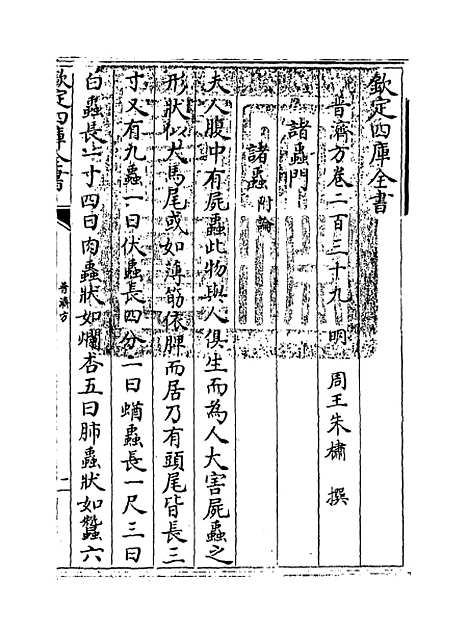 欽定四庫全書
普濟方卷二百三十九　明　周王朱橚　撰
諸蟲門
諸蟲附論
夫人腹中有屍蟲此物與人俱生而為人大害屍蟲之
形狀似犬馬尾或如薄筋依脾而居乃有頭尾皆長三
寸又有九蟲一曰伏蟲長四分二曰蛕蟲長一尺三曰
白蟲長一寸四曰肉蟲狀如爛杏五曰肺蟲狀如蠶六
欽定四庫全書
普濟方